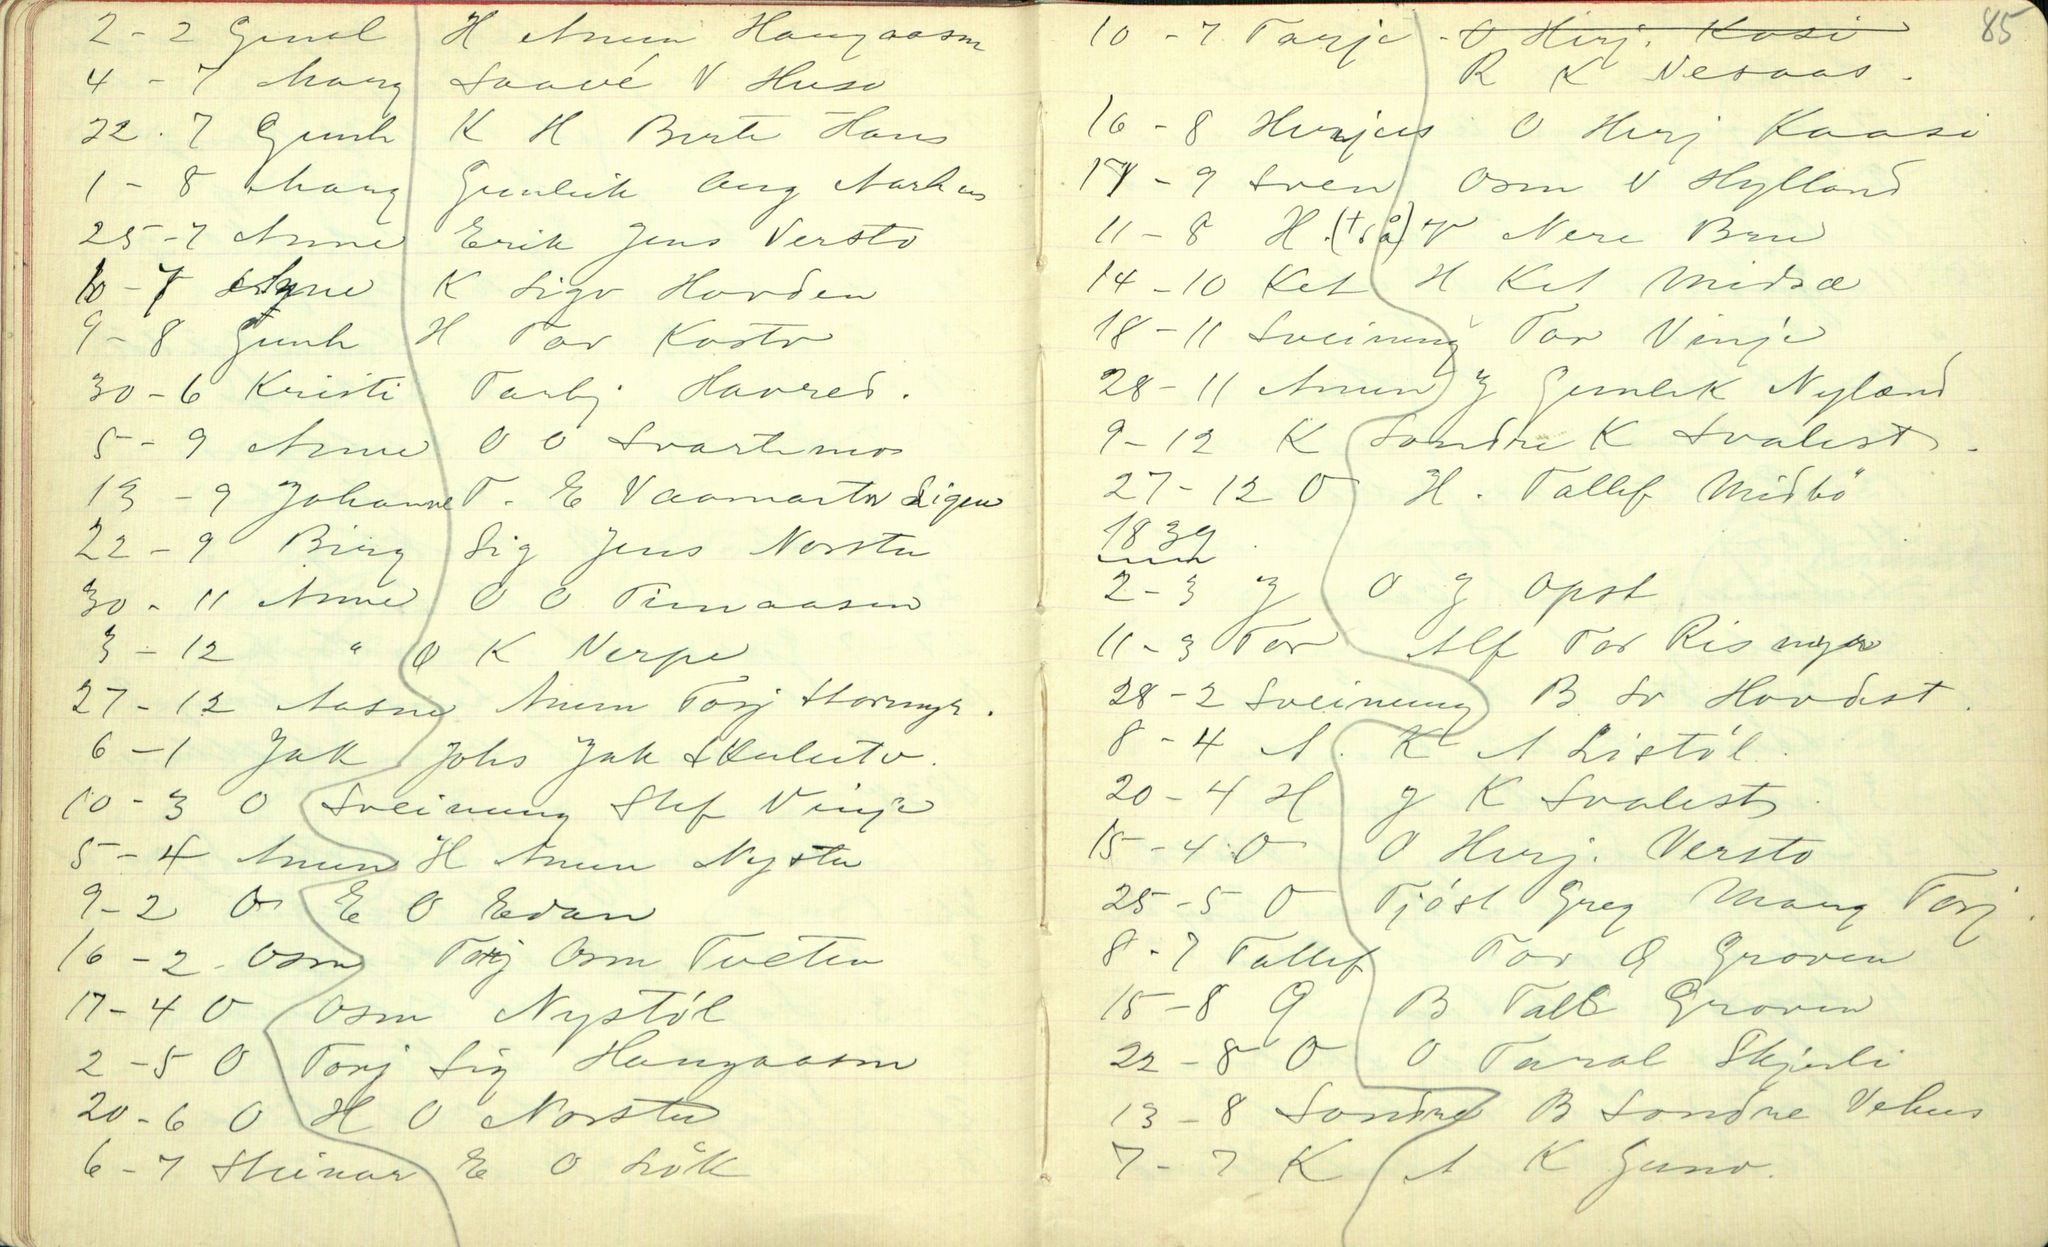 2 - 2 Gunl H Anun Haugaasm
4 - 7 Marg Saavé V Huso
22 . 7 Gunh K H Berte Haus
1 - 8 Marg Gunleik Aug Narhus
25 - 7 Anne Erik Jens Versto
10 - 7 K Sigv Hovden
9 - 8 Gunh H Tor Kostv
30 - 6 Kristi Tarbj Havred.
5 - 9 Anne O O Svartemos
13 - 9 Johanne T. E Vaamartv Ligen
22 - 9 Birg Sig Jens Norstu
30 - 11 Anne O O Timaasen
3 - 12 " O K Nerpe
27 - 12 Aasne Anun Torj Stormyr.
6 - 1 Jak Johs Jak Skulutv.
10 - 3 O Sveinung Stef Vinje
5 - 4 Anun H Anun Nystu
9 - 2 O E O Edan
16 - 2 . Osm Torj Osm Tveten
17 - 4 O Osm Nystöl
2 - 5 O Torj Sig Haugaasm
20 - 6 O H O Norstu
6 - 7 Steinar E O Lök
85
10 - 7 Tarje O Herj. Kosi
R K Nesaas.
16 - 8 Herjus O Herj Kaasi
17 - 9 Sven Osm V Hylland
11 - 8 H. († så) V Nere Bru
14 - 10 Ket H Ket Midsæ
18 - 11 Sveinung Tor Vinje
28 - 11 Anun J Gunlek Nyland
9 - 12 K Sondre K Svalest.
27 - 12 O H. Tallef Midbö
1839.
2 - 3 J O J Opst
11 - 3 Tor Alf Tor Rismyr
28 - 2 Sveinung B Sv Hovdest.
8 - 4 A. K A Listöl.
20 - 4 H J K Svalest.
15 - 4 O O Herj. Versto
25 - 5 O Tjöst Greg Marg Torj.
8 - 7 Tallef Tor G Groven
15 - 8 G B Talle Groven
22 - 8 O O Taral Skjerli
13 - 8 Sondre B Sondre Vehus
7 - 7 K A K Guno.